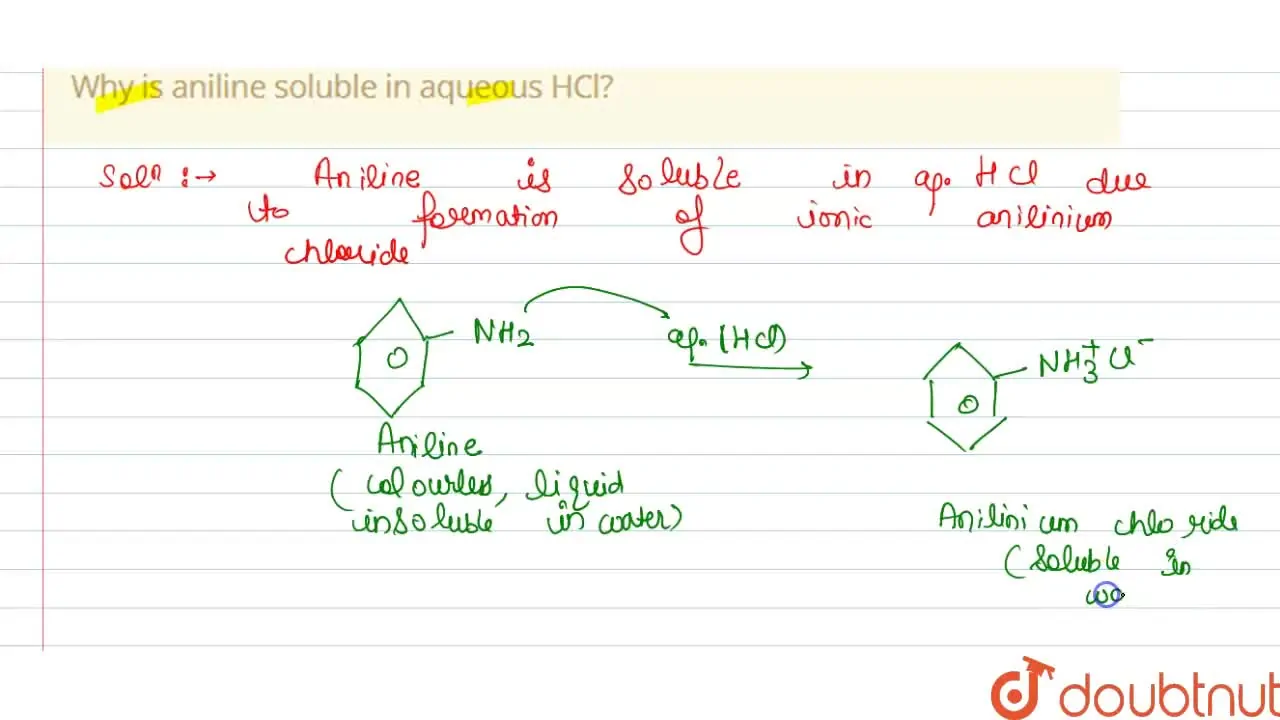 Why is aniline soluble in aqueous HCl?
Solⁿ :→ Aniline is soluble in aq. HCl due
to formation of ionic anilinium
chloride
NH2 aq. (HCl) NH3+ Cl-
Aniline
(colourless, liquid
insoluble in water)
Anilinium chloride
(soluble in
wa
doubtnut